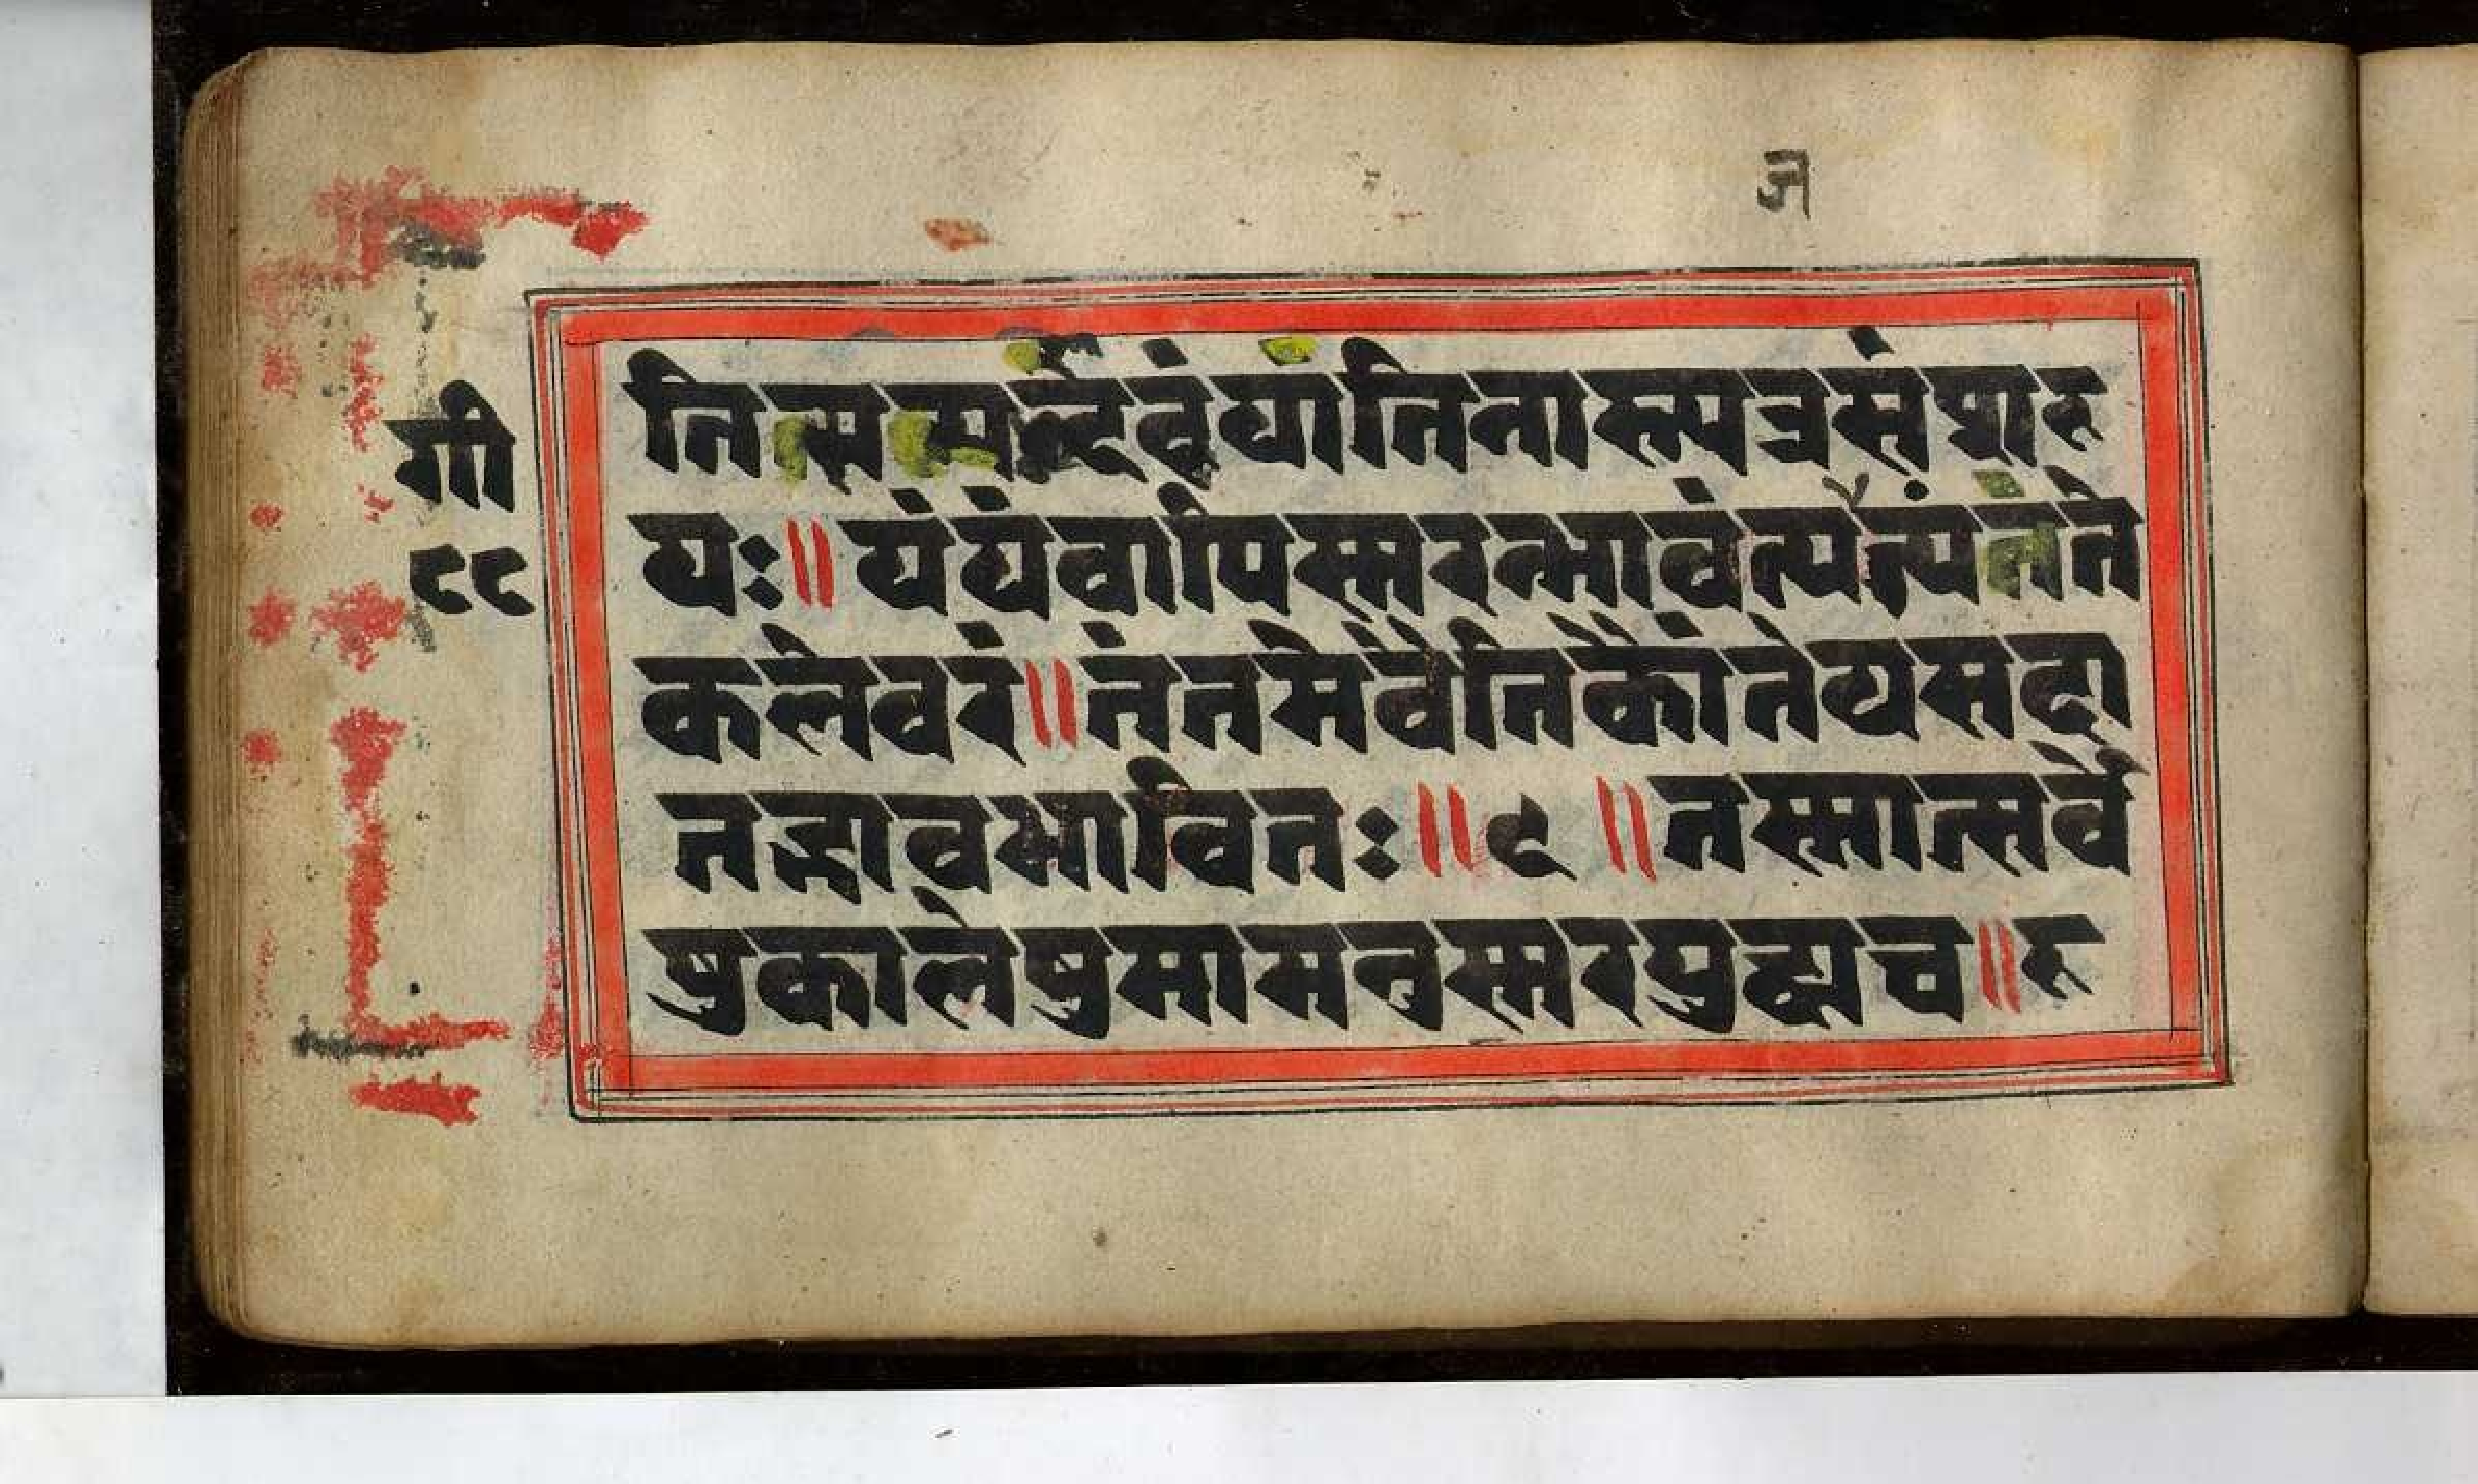 ज
तिसमद्देवंयांतिनास्त्यत्रसंशरु
यः॥यंयंवापिस्मरन्भावंत्यत्यंतते
गी
८८
कलेवरं॥तंतमेवैतिकौंतेयसदा
तद्भावभावितः॥६॥तस्मात्सर्वे
षुकालेषुमामनुस्मरयुद्ध्यच॥रु